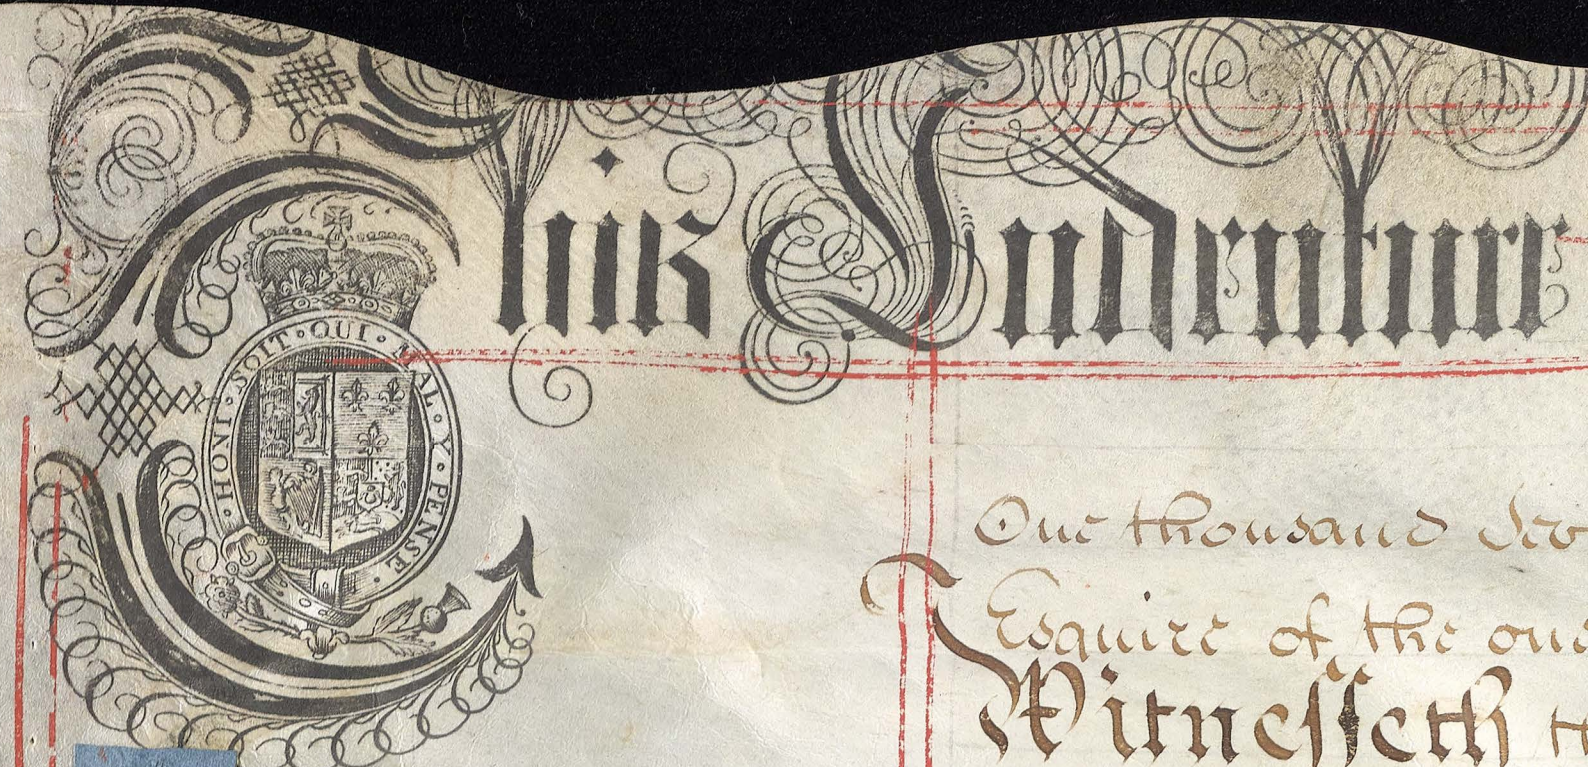 This Indenture
HONI · SOIT · QUI · MAL · Y · PENSE ·
One thousand Sev
Esquire of the one
Witnesseth t